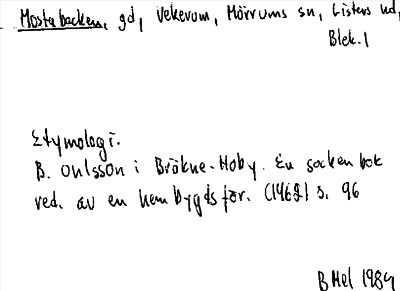 Mostabacken, gd, Vekerum, Mörrums sn, Listers hd,
Blek. l
Etymologi.
B. Ohlsson i Bräkne-Hoby. En sockenbok
red. av en hembygdsför. (1962) s. 96
B Hel 1984